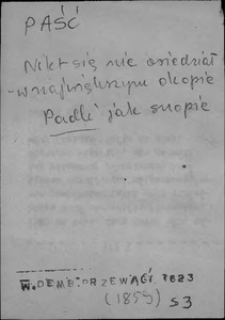 PAŚĆ
Nikt się nie osiedział
w największym okopie
Padli jak snopie
W. DEMB. PRZEWAGI 1623
(1859) s 3